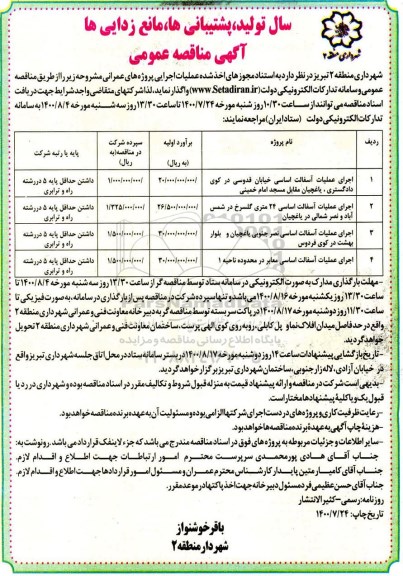 سال تولید،پشتیبانی ها،مانع زدایی ها
آگهی مناقصه عمومی
شهرداری منطقه ۲
شهرداری منطقه ۲ تبریز در نظر دارد به استناد مجوزهای اخذ شده عملیات اجرایی پروژه های عمرانی مشروحه زیر را از طریق مناقصه
عمومی وسامانه تدارکات الکترونیکی دولت (www.Setadiran.ir) واگذار نماید، لذا شرکتهای متقاضی واجد شرایط جهت دریافت
اسناد مناقصه می توانند از ساعت ۱۰/۳۰ روز شنبه مورخه ۱۴۰۰/۷/۲۴ تا ساعت ۱۳/۳۰ روز سه شنبه مورخه ۱۴۰۰/۸/۴ به سامانه
تدارکات الکترونیکی دولت (ستاد ایران) مراجعه نمایند:
ردیف نام پروژه برآورد اولیه (به ریال) سپرده شرکت در مناقصه(به ریال) پایه یا رتبه شرکت
۱ اجرای عملیات آسفالت اساسی خیابان قدوسی در کوی دادگستری ، باغچیان مقابل مسجد امام خمینی ۲۰/۰۰۰/۰۰۰/۰۰۰ ۱/۰۰۰/۰۰۰/۰۰۰ داشتن حداقل پایه ۵ دررشته راه و ترابری
۲ اجرای عملیات آسفالت اساسی ۲۴ متری گلسرخ در شمس آباد و نصر شمالی در باغچیان ۲۶/۵۰۰/۰۰۰/۰۰۰ ۱/۳۲۵/۰۰۰/۰۰۰ داشتن حداقل پایه ۵ دررشته راه و ترابری
۳ اجرای عملیات آسفالت اساسی نصر جنوبی باغچیان و بلوار بهشت در کوی فردوس ۳۰/۰۰۰/۰۰۰/۰۰۰ ۱/۵۰۰/۰۰۰/۰۰۰ داشتن حداقل پایه ۵ دررشته راه و ترابری
۴ اجرای عملیات آسفالت اساسی معابر در محدوده ناحیه ۱ ۳۰/۰۰۰/۰۰۰/۰۰۰ ۱/۵۰۰/۰۰۰/۰۰۰ داشتن حداقل پایه ۵ دررشته راه و ترابری
-مهلت بارگذاری مدارک به صورت الکترونیکی در سامانه ستاد توسط مناقصه گر از ساعت ۱۳/۳۰ روز سه شنبه مورخه ۱۴۰۰/۸/۴ تا
ساعت ۱۳/۳۰ روز یکشنبه مورخه ۱۴۰۰/۸/۱۶ می باشد و تنها سپرده شرکت در مناقصه پس از بارگذاری در سامانه، به صورت فیزیکی تا
ساعت ۱۱/۳۰ روز دوشنبه مورخه ۱۴۰۰/۸/۱۷ در پاکت سربسته توسط مناقصه گر به دبیرخانه معاونت فنی و عمرانی شهرداری منطقه ۲
واقع در حدفاصل میدان افلاک نما و پل کابلی، روبه روی کوی الهی پرست، ساختمان معاونت فنی و عمرانی شهرداری منطقه ۲ تحویل
خواهد گردید.
-تاریخ بازگشایی پیشنهادات ساعت ۱۴ روز دوشنبه مورخه ۱۴۰۰/۸/۱۷ در بستر سامانه ستاد در محل اتاق جلسه شهرداری تبریز واقع
در خیابان آزادی، لاله زار جنوبی، ساختمان شهرداری تبریز برگزار خواهد گردید.
-بدیهی است شرکت در مناقصه و ارائه پیشنهاد قیمت به منزله قبول شروط و تکالیف مقرر در اسناد مناقصه بوده و شهرداری در رد یا
قبول یک و یا کلیه پیشنهادها مختار است.
-رعایت ظرفیت کاری و پروژه های در دست اجرای شرکتها الزامی بوده و مسئولیت آن به عهده برنده مناقصه خواهد بود.
-هزینه چاپ آگهی به عهده برنده مناقصه ها خواهد بود.
-سایر اطلاعات و جزئیات مربوط به پروژه های فوق در اسناد مناقصه مندرج می باشد که جزء لاینفک قرارداد می باشد. رونوشت به:
جناب آقای هادی پورمحمدی سرپرست محترم امور ارتباطات جهت اطلاع و اقدام لازم.
جناب آقای کامیار متین پایدار کارشناس محترم عمران و مسئول امور قراردادها جهت اطلاع و اقدام لازم.
جناب آقای حسن عظیمی فرد مسئول دبیرخانه جهت اخذ پاکتها در موعد مقرر.
روزنامه: رسمی-کثیر الانتشار
تاریخ چاپ: ۱۴۰۰/۷/۲۴
باقر خوشنواز
شهردار منطقه ۲
پایگاه اطلاع رسانی مناقصه و مزایده